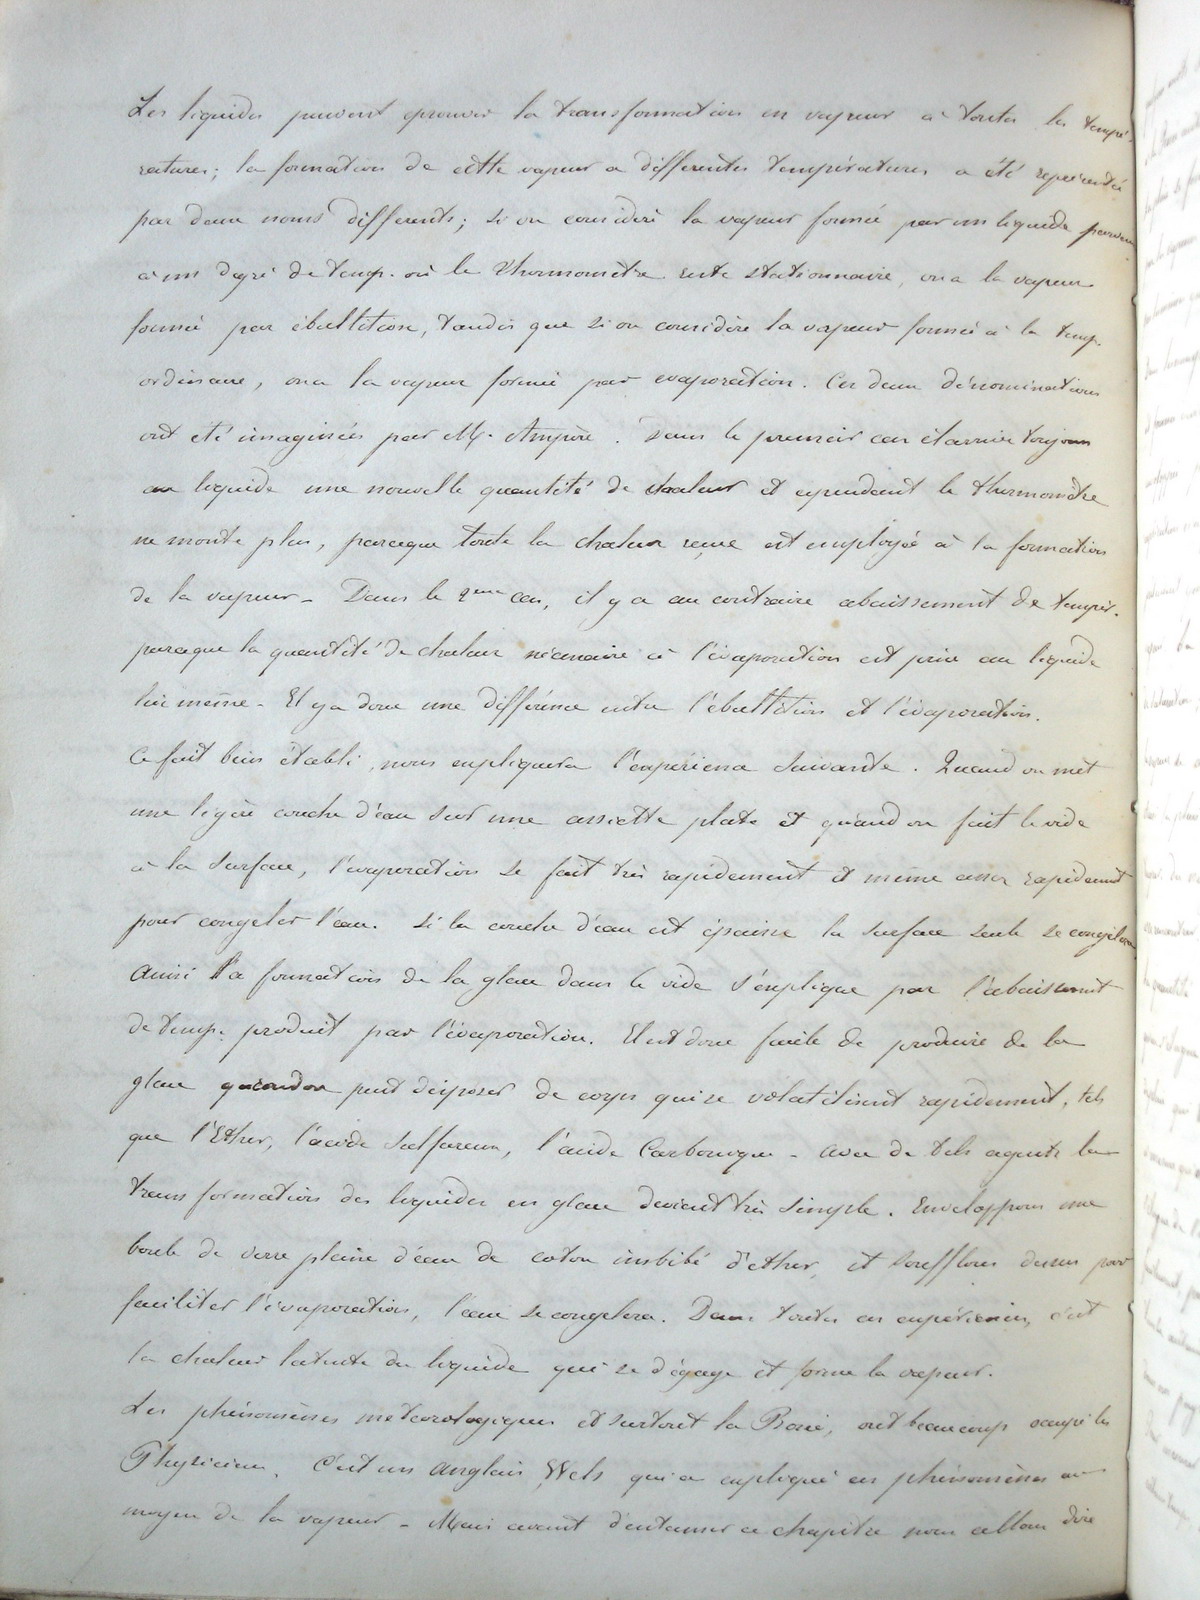 Les liquides peuvent eprouver la transformation en vapeur à toutes les tempé
ratures; la formation de cette vapeur a differentes températures a été representée
par deux noms differents; si on considère la vapeur formée par un liquide parvenu
à un degré de temp. où le Thermomètre reste stationnaire, on a la vapeur
formée par ébullition, tandis que si on considère la vapeur formée à la temp.
ordinaire, on a la vapeur formée par evaporation. Ces deux dénominations
ont été imaginées par M. Ampère. Dans le premier cas il arrive toujours
au liquide une nouvelle quantité de chaleur et cependant le thermomètre
ne monte plus, parceque toute la chaleur reçue est employée à la formation
de la vapeur - Dans le 2eme cas, il y a au contraire abaissement de tempér.
parceque la quantité de chaleur nécessaire à l'évaporation est prise au liquide
lui même - Il y a donc une différence entre l'ébullition et l'évaporation.
Ce fait bien établi, nous expliquera l'expérience suivante. Quand on met
une légère couche d'eau sur une assiette plate et quand on fait le vide
à la surface, l'evaporation se fait très rapidement et même assez rapidement
pour congeler l'eau. Si la couche d'eau est épaisse la surface seule se congelera
Ainsi la formation de la glace dans le vide s'explique par l'abaissement
de temp. produit par l'évaporation. Il est donc facile de produire de la
glace quand on peut disposer de corps qui se volatilisent rapidement, tels
que l'Ether, l'acide sulfureux, l'acide Carbonique - avec de tels agents la
transformation des liquides en glace devient très simple. Enveloppons une
boule de verre pleine d'eau de coton imbibé d'ether, et soufflons dessus pour
faciliter l'évaporation, l'eau se congelera. Dans toutes ces expériences, c'est
la chaleur latente du liquide qui se dégage et forme la vapeur.
Les phénomènes météorologiques et surtout la Rosée, ont beaucoup occupé les
Physiciens. C'est un Anglais Wels qui a expliqué ces phénomènes au
moyen de la vapeur - Mais avant d'entamer ce chapitre nous allons dire